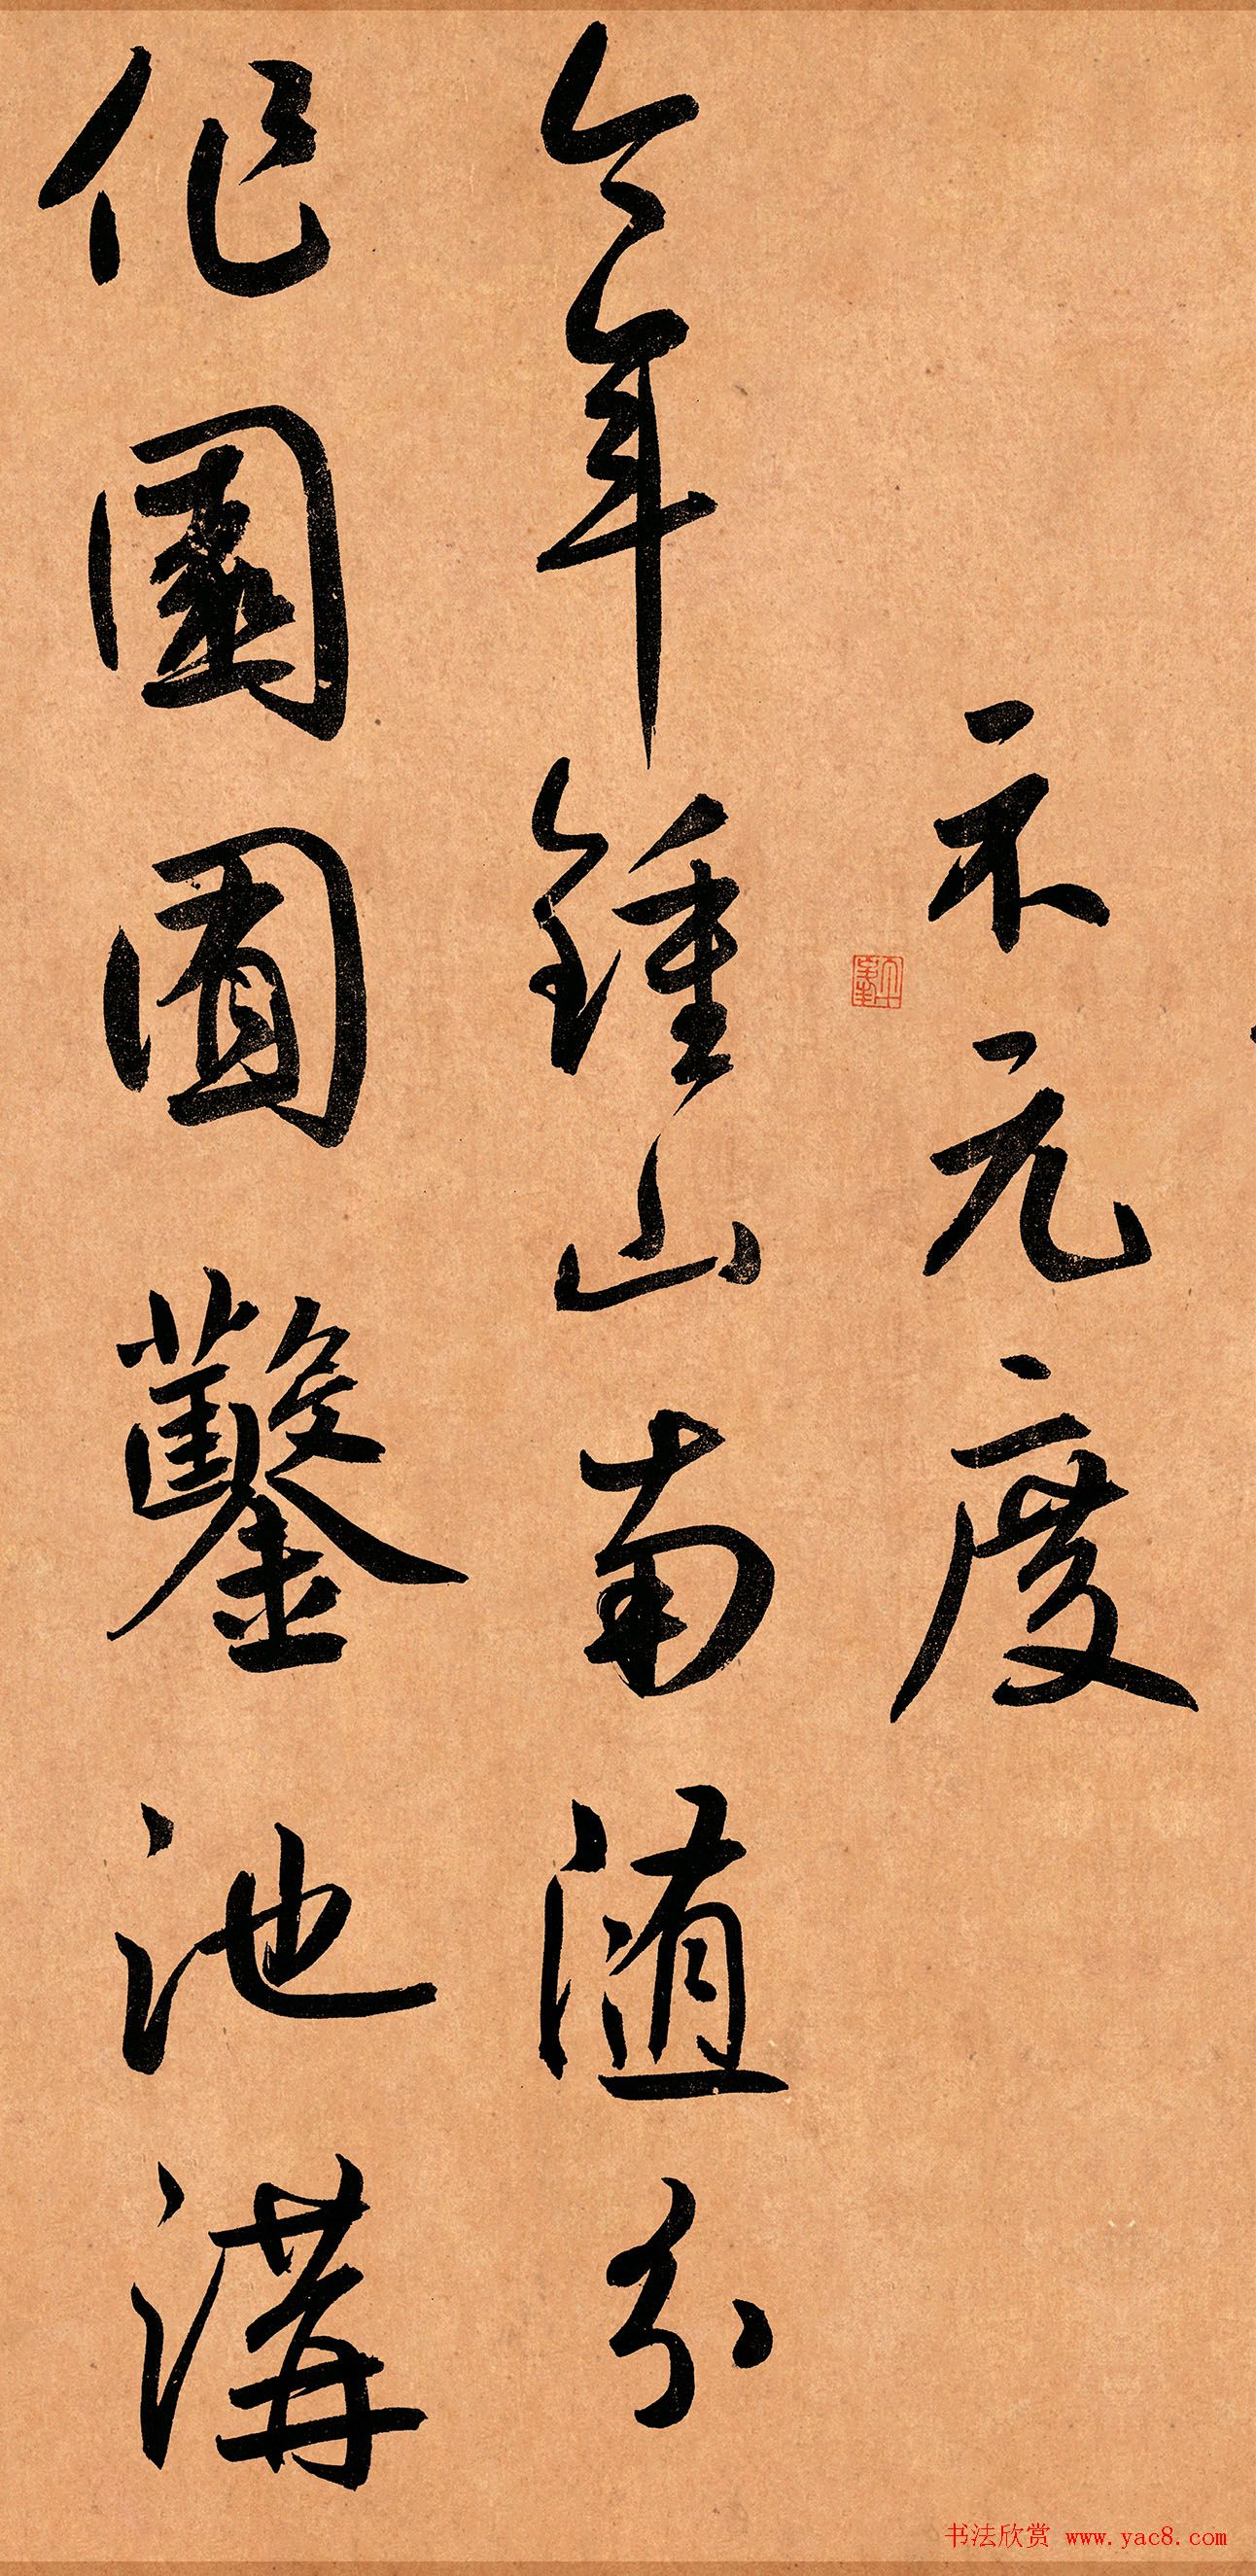 示元度
今年鍾山南隨分
作園囿鑿池溝
书法欣赏 www.yac8.com